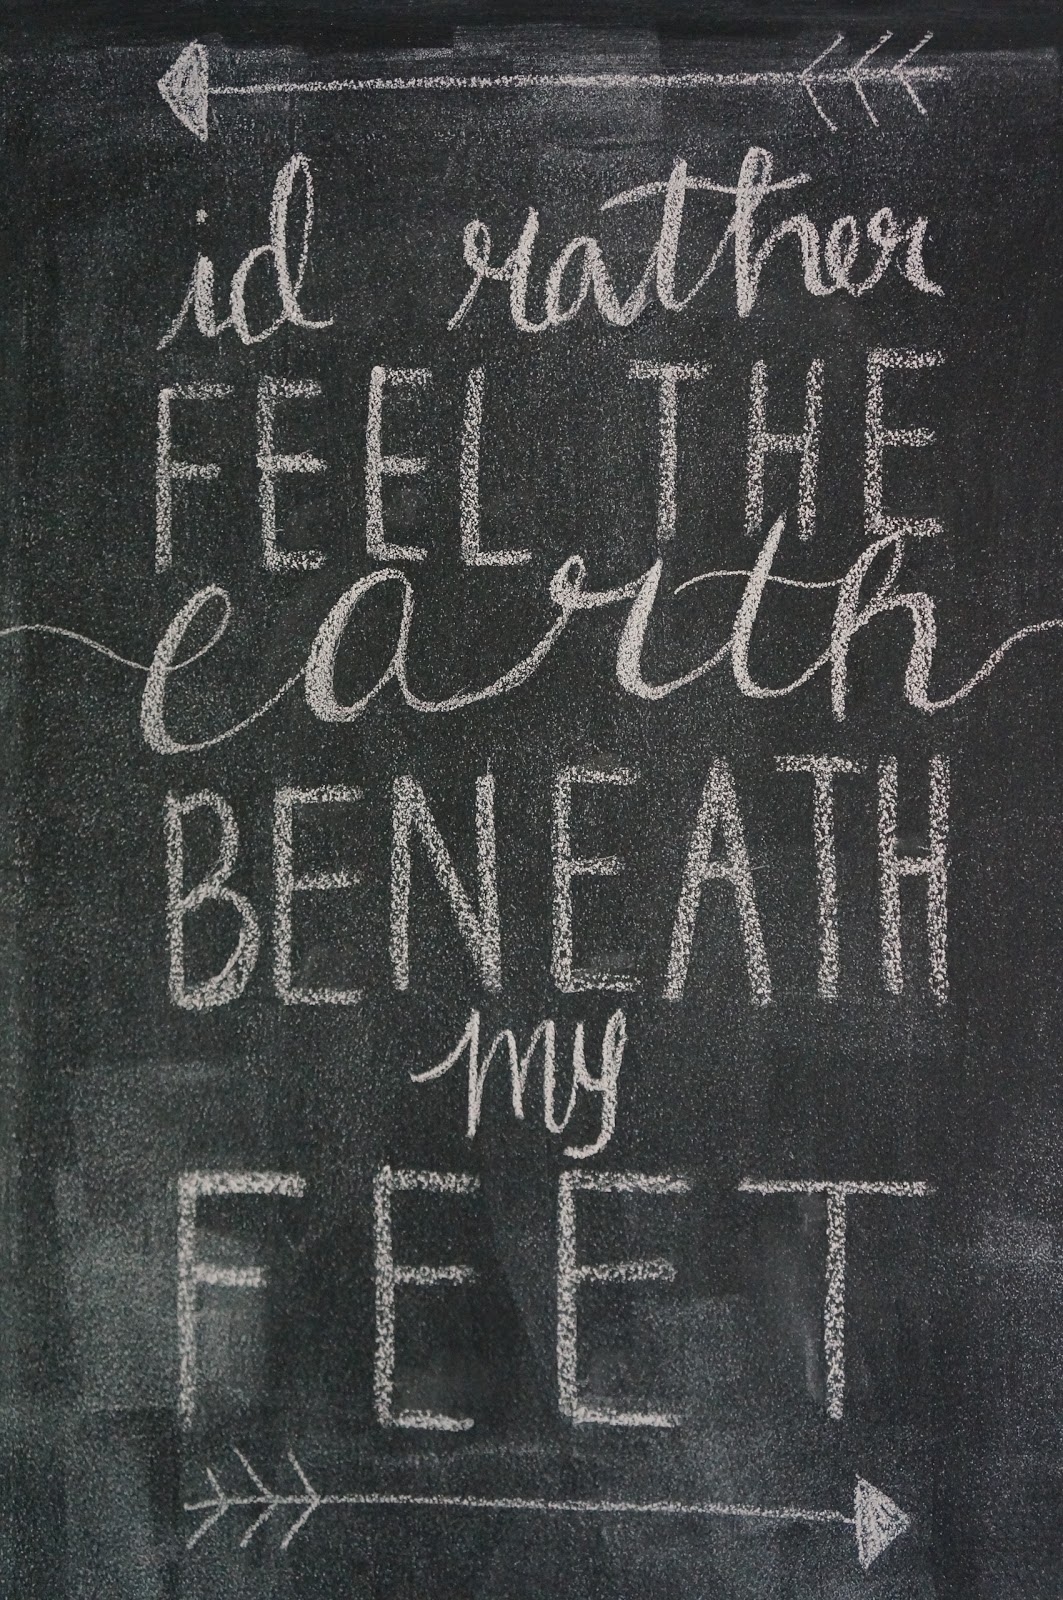 id rather
FEEL THE
earth
BENEATH
my
FEET